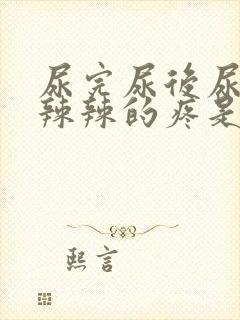 尿完尿後尿
辣辣的疼是
熙言